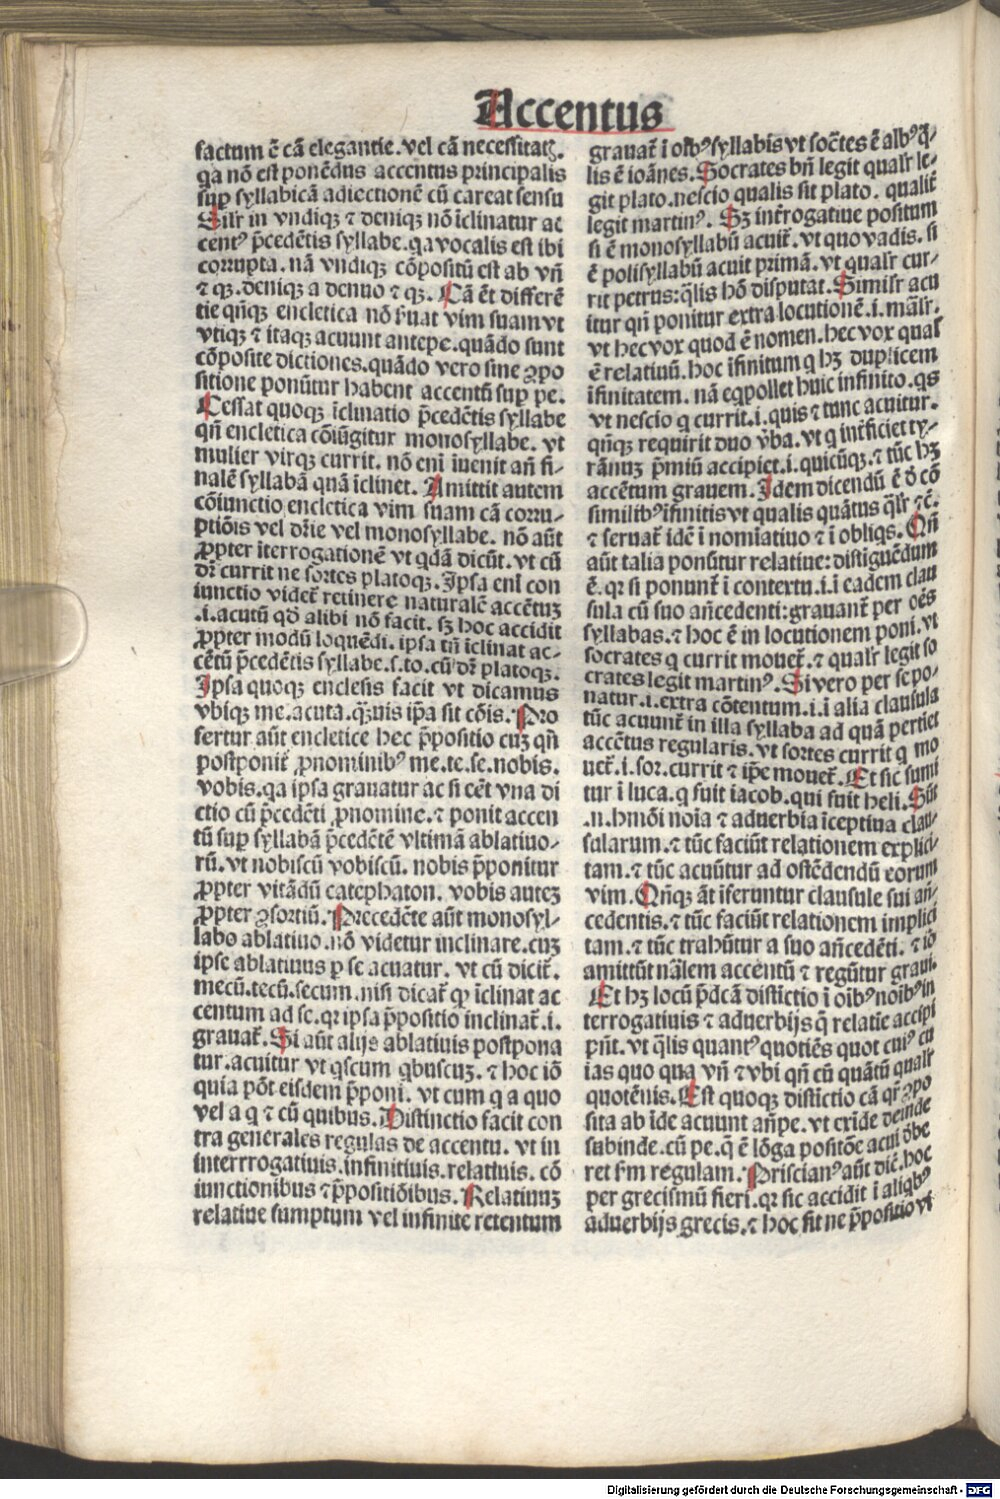 Accentus
factum ē cā elegantie. vel cā necessitatꝫ.
qa nō est ponēdus accentus principalis
suꝑ syllabicā adiectionē cū careat sensu
Silr̄ in vndiqꝫ ⁊ deniqꝫ nō īclinatur ac
centꝰ p̄cedētis syllabe. qa vocalis est ibi
corrupta. nā vndiqꝫ cōpositū est ab vn̄
⁊ qꝫ. deniqꝫ a denuo ⁊ qꝫ. Cā ēt differē
tie qn̄qꝫ encletica nō ẜuat vim suam vt
vtiqꝫ ⁊ itaqꝫ acuunt antepe. quādo sunt
cōposite dictiones. quādo vero sine ↄpo
sitione ponūtur habent accentū suꝑ pe.
Cessat quoqꝫ īclinatio p̄cedētis syllabe
qn̄ encletica cōiūgitur monosyllabe. vt
mulier virqꝫ currit. nō eni īuenit an̄ fi-
nalē syllabā quā īclinet. Amittit autem
cōiunctio encletica vim suam cā corru-
ptiōis vel dr̄ie vel monosyllabe. nō aūt
ꝓpter īterrogationē vt qdā dicūt. vt cū
dr̄ currit ne sortes platoqꝫ. Ipsa eni con
iunctio videt᷑ retinere naturalē accētuꝫ
.i. acutū qđ alibi nō facit. sꝫ hoc accidit
ꝓpter modū loquēdi. ipsa tn̄ īclinat ac-
cētū p̄cedētis syllabe. s. to. cū dr̄ platoqꝫ.
Ipsa quoqꝫ enclesis facit vt dicamus
vbiqꝫ me. acuta. qͣuis ip̄a sit cōis. Pro
fertur aūt encletice hec p̄positio cuꝫ qn̄
postponit᷑ ꝓnominibꝰ me. te. se. nobis.
vobis. qa ipsa grauatur ac si eēt vna di
ctio cū p̄cedēti ꝓnomine. ⁊ ponit accen
tū suꝑ syllabā p̄cedētē vltimā ablatiuo-
rū. vt nobiscū vobiscū. nobis p̄ponitur
ꝓpter vitādū catephaton. vobis auteꝫ
ꝓpter ↄsortiū. Precedēte aūt monosyl-
labo ablatiuo. nō videtur inclinare. cuꝫ
ipse ablatiuus ꝑ se acuatur. vt cū dicit᷑.
mecū. tecū. secum. nisi dicat᷑ ꝙ īclinat ac
centum ad se. qr ipsa p̄positio inclinat᷑ .i.
grauat᷑. Si aūt alijs ablatiuis postpona
tur. acuitur vt qscum qbuscuꝫ. ⁊ hoc iō
quia pōt eisdem p̄poni. vt cum q a quo
vel a q ⁊ cū quibus. Distinctio facit con
tra generales regulas de accentu. vt in
interrrogatiuis. infinitiuis. relatiuis. cō
iunctionibus ⁊ p̄positiōibus. Relatiuuꝫ
relatiue sumptum vel infinite retentum
grauat᷑ ī oībꝰ syllabis vt soc̄tes ē albꝰ q̄-
lis ē ioānes. Socrates bn̄ legit qualr̄ le-
git plato. nescio qualis sit plato. qualit᷑
legit martinꝰ. Sꝫ int᷑rogatiue positum
si ē monosyllabū acuit᷑. vt quo vadis. si
ē polisyllabū acuit primā. vt qualr̄ cur-
rit petrus: q̄lis hō disputat. Similr̄ acu
itur qn̄ ponitur extra locutionē .i. mālr̄.
vt hec vox quod ē nomen. hec vox qualr̄
ē relatiuū. hoc īfinitum q hꝫ duplicem
īfinitatem. nā eqpollet huic infinito. qs
vt nescio q currit .i. quis ⁊ tunc acuitur.
qn̄qꝫ requirit duo v̄ba. vt q int᷑ficiet ty-
rānuꝫ p̄miū accipiet .i. quicūqꝫ. ⁊ tūc hꝫ
accētum grauem. Idem dicendū ē ō cō
similibꝰ īfinitis vt qualis quātus q̄lr̄ ⁊c̄.
⁊ seruat᷑ idē ī nomīatiuo ⁊ ī obliqs. Qn̄
aūt talia ponūtur relatiue: distiguēdum
ē. qr si ponunt᷑ ī contextu .i. ī eadem clau
sula cū suo an̄cedenti: grauant᷑ per oēs
syllabas. ⁊ hoc ē in locutionem poni. vt
socrates q currit mouet᷑. ⁊ qualr̄ legit so
crates legit martinꝰ. Si vero per se po-
natur .i. extra cōtentum .i. ī alia clausula
tūc acuunt᷑ in illa syllaba ad quā pertiet
accētus regularis. vt sortes currit q mo
uet᷑ .i. sor. currit ⁊ ip̄e mouet᷑. Et sic sumi
tur ī luca. q fuit iacob. qui fuit heli. Sūt
.n. hmōi noīa ⁊ aduerbia īceptiua clau-
sularum. ⁊ tūc faciūt relationem explici-
tam. ⁊ tūc acuūtur ad ostēdendū eorum
vim. Qn̄qꝫ āt īferuntur clausule sui an̄-
cedentis. ⁊ tūc faciūt relationem implici
tam. ⁊ tūc trahūtur a suo an̄cedēti. ⁊ iō
amittūt nālem accentū ⁊ regūtur graui.
Et hꝫ locū p̄dcā distictio ī oībꝰ noībꝰ in
terrogatiuis ⁊ aduerbijs q̄ relatīe accipi
pn̄t. vt q̄lis quantꝰ quotiēs quot cuiꝰ cu
ias quo qua vn̄ ⁊ vbi qn̄ cū quātū qualr̄
quotēnis. Est quoqꝫ distictio cā qr̄ ↄpo
sita ab īde acuunt an̄pe. vt exīde deinde
subinde. cū pe. q̄ ē lōga positōe acui d̄be
ret ẜm regulam. Priscianꝰ aūt dic̄. hoc
per grecismū fieri. qr sic accidit ī aliqbꝰ
aduerbijs grecis. ⁊ hoc fit ne p̄positio vt
Digitalisierung gefördert durch die Deutsche Forschungsgemeinschaft - DFG